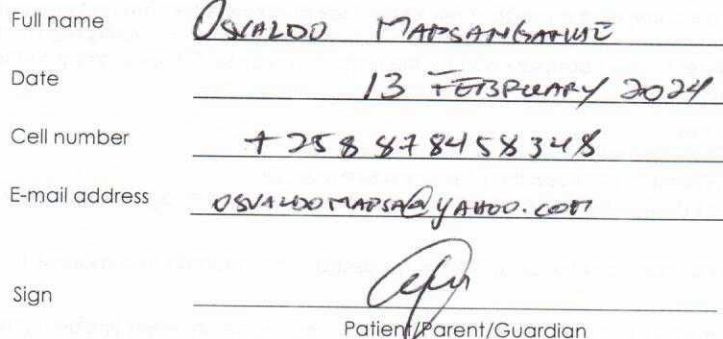 Full name OSVALDO MAPSANGANHE
Date 13 FEBRUARY 2024
Cell number +258 878458348
E-mail address OSVALDOMAPSA@YAHOO.COM
Sign
Patient/Parent/Guardian